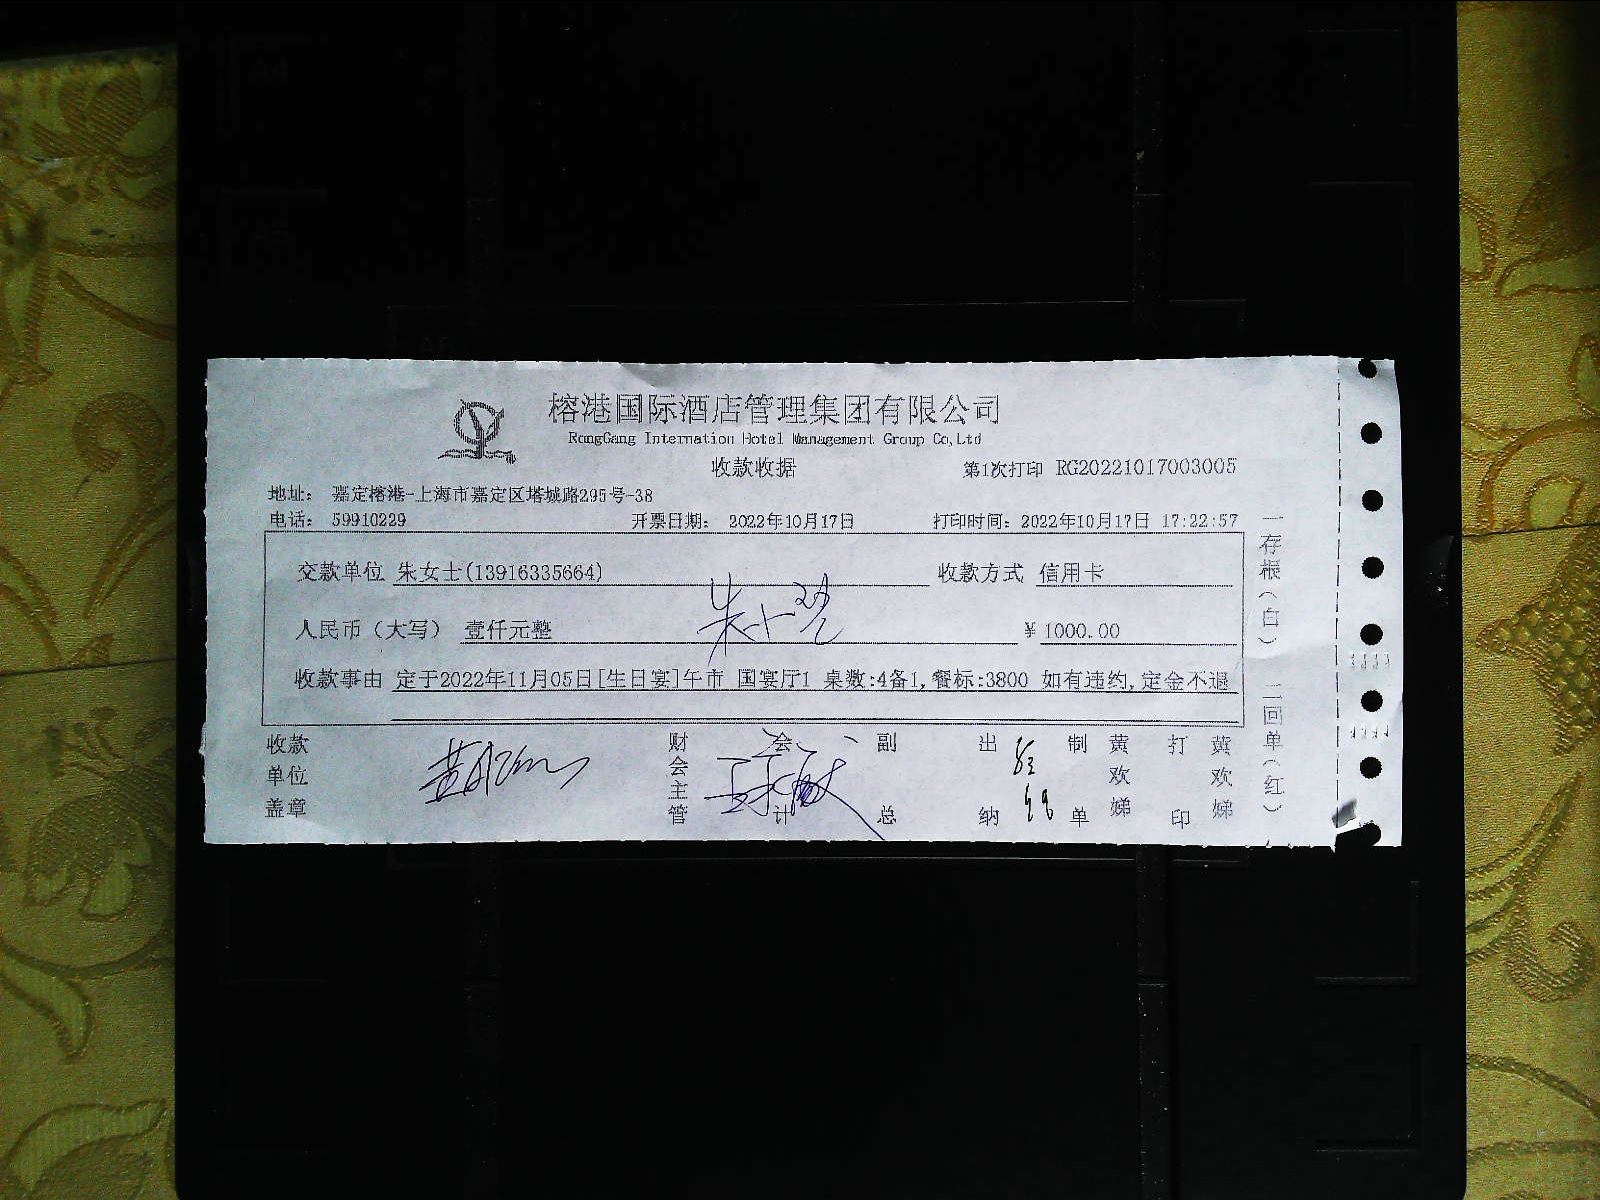 榕港国际酒店管理集团有限公司
RongGang Internation Hotel Management Group Co,Ltd
收款收据
第1次打印 RG20221017003005
地址： 嘉定榕港-上海市嘉定区塔城路295号-38
电话： 59910229 开票日期： 2022年10月17日 打印时间：2022年10月17日 17:22:57
交款单位 朱女士(13916335664) 收款方式 信用卡
人民币（大写） 壹仟元整 ¥ 1000.00
收款事由 定于2022年11月05日[生日宴]午市 国宴厅1 桌数:4备1,餐标:3800 如有违约,定金不退
收款单位盖章 财会主管 会计 副总 出纳 制单 黄欢娣 打印 黄欢娣
一存根（白） 二回单（红）